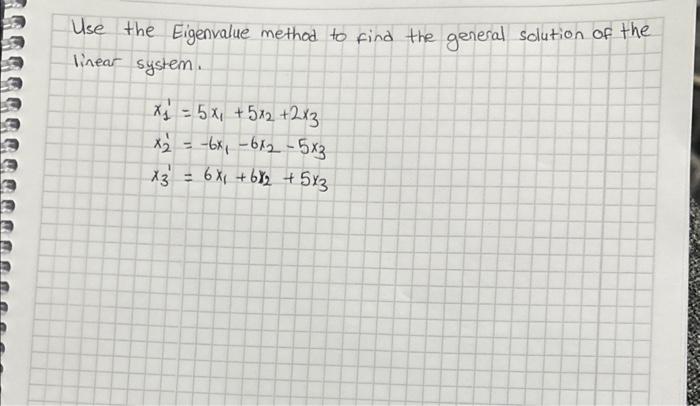 Use the Eigenvalue method to find the general solution of the
linear system.
x₁' = 5x₁ + 5x₂ + 2x₃
x₂' = -6x₁ - 6x₂ - 5x₃
x₃' = 6x₁ + 6x₂ + 5x₃